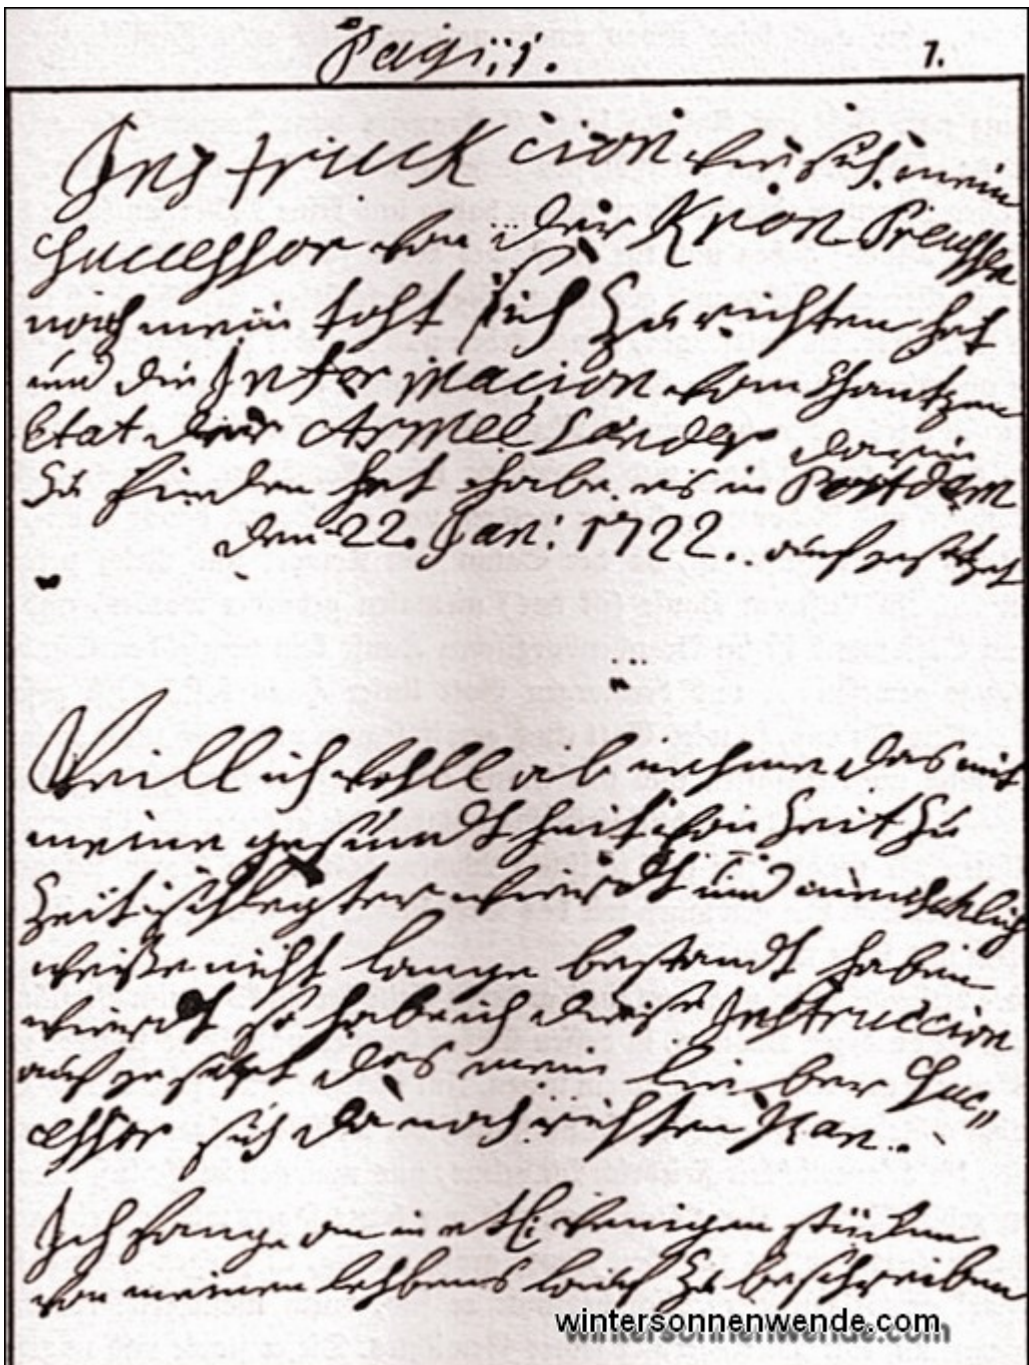 Pagi: 1. 1.
Instruckcion wie sich mein
Successor von der Kron Preussen
nach mein toht sich zu richten hat
und die Informacion vom gantzen
Etat der Armee Lender darin
zu finden hat habe es in Postdam
den 22. Jan: 1722. aufgesetzet
Weill ich wohll ab nehme das mit
meine gesundtheit von Zeit zu
Zeit schlegter wierdt und menschlich
weisse nicht lange bestandt haben
wierdt so habe ich diese Instruccion
auf gesetzet das mein lieber Suc„
cessor sich da nach richten Kan.
Ich fange an in etl: wenigen stücken
von meinen lehbens lauf zu beschreiben
wintersonnenwende.com